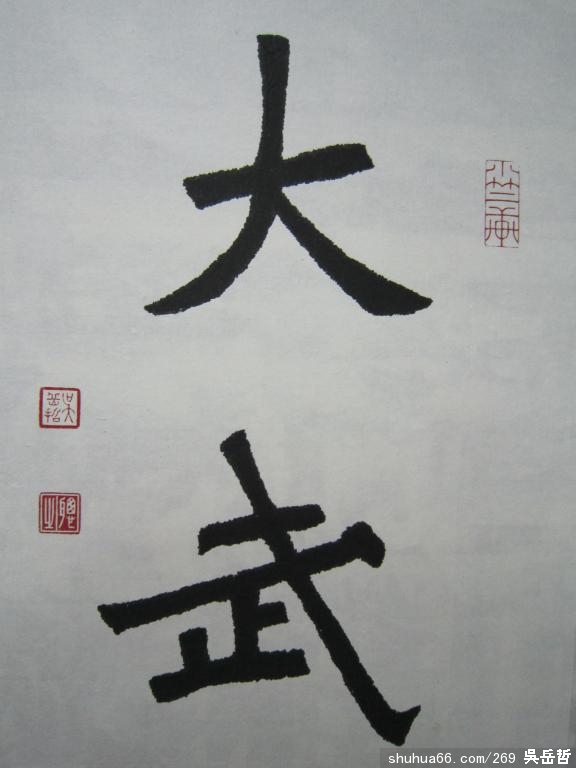 大武
吳岳哲
shuhua66.com/269 吳岳哲